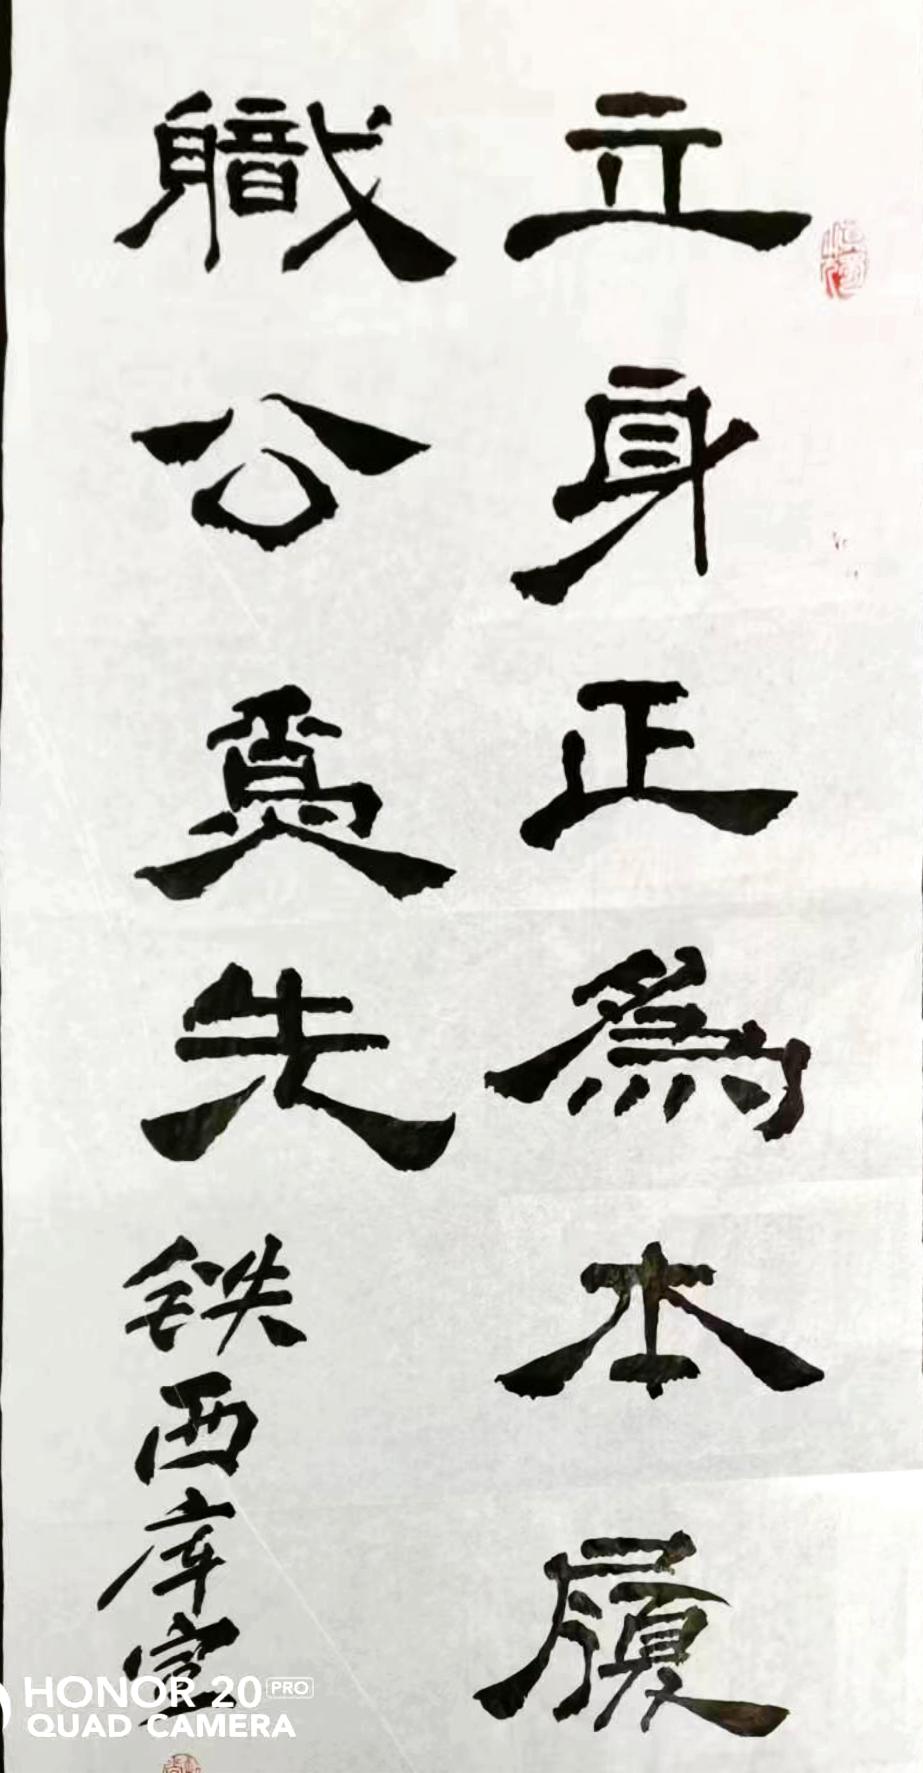 立身正為本履
職公為先
铁西库宣
HONOR 20 PRO
QUAD CAMERA